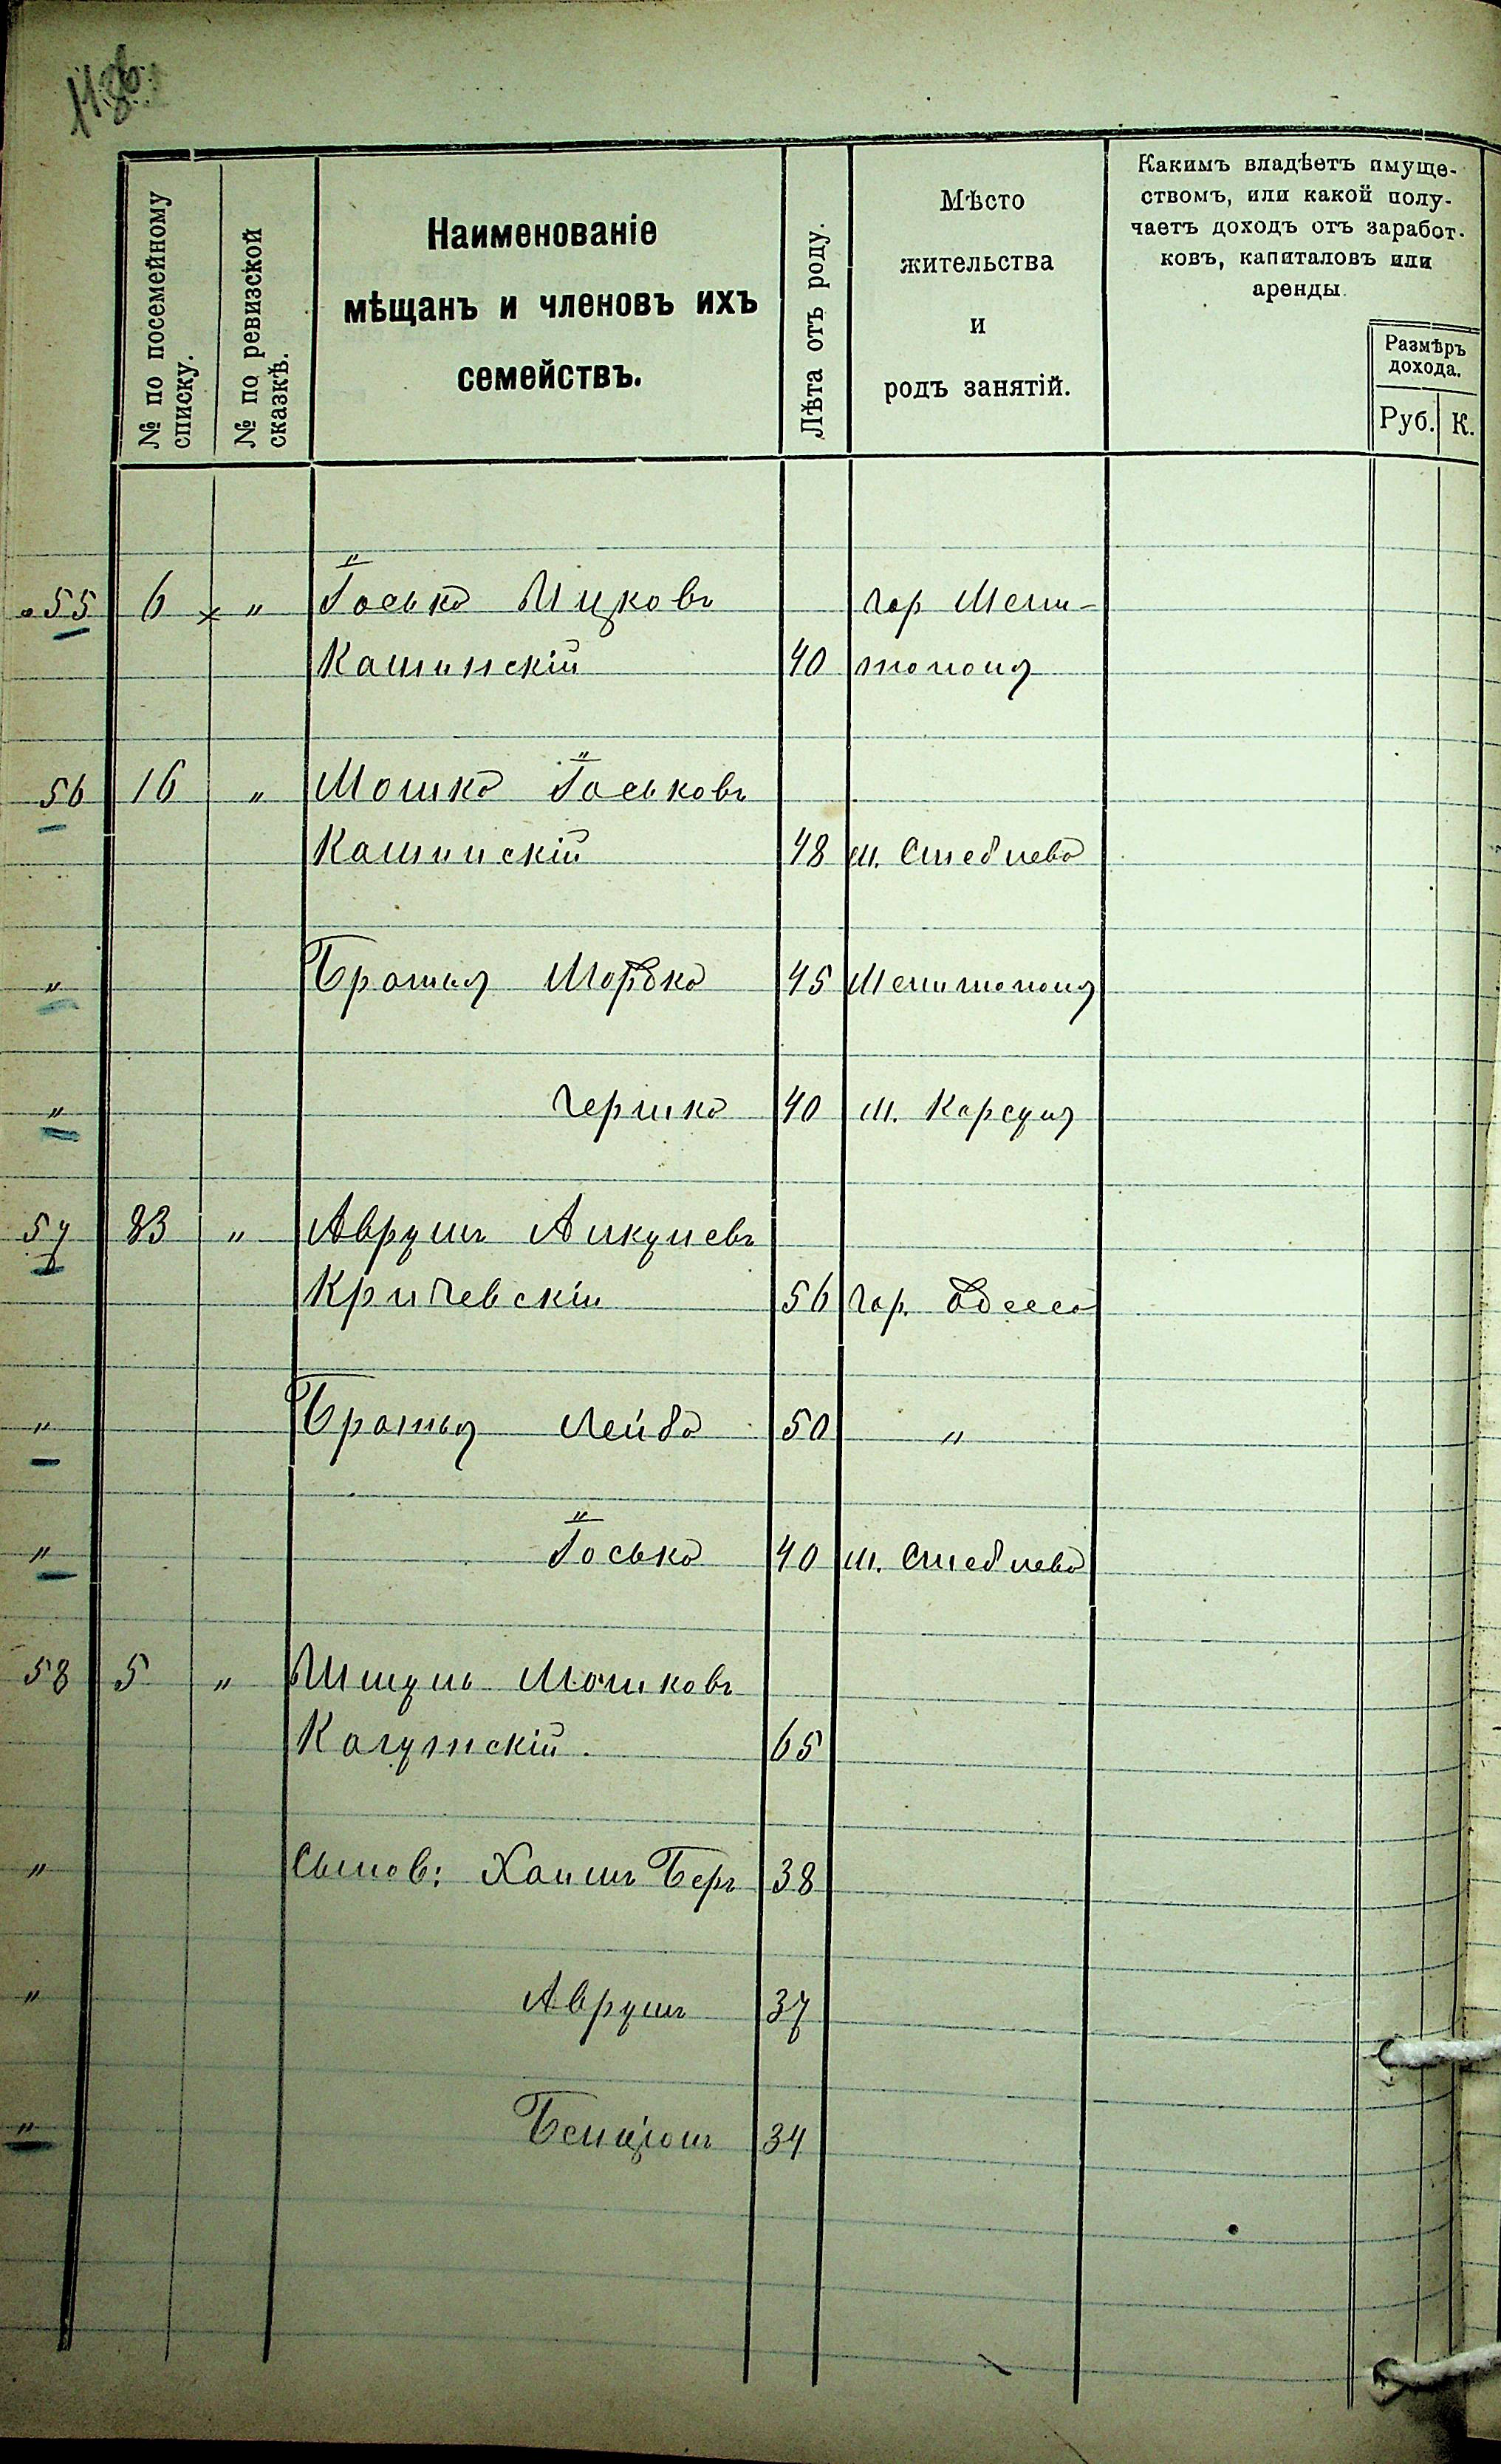 № по посемейному списку.
№ по ревизской сказкѣ.
Наименованіе
мѣщанъ и членовъ ихъ
семействъ.
Лѣта отъ роду.
Мѣсто
жительства
и
родъ занятій.
Какимъ владѣетъ имуще-
ствомъ, или какой полу-
чаетъ доходъ отъ заработ-
ковъ, капиталовъ или
аренды.
Размѣръ
дохода.
Руб. К.
55 6 × " Іосько Ицковъ гор Мели-
Каминскій 40 тополя
56 16 " Мошко Іоськовъ
Каминскій 48 м. Стеблева
" Братья Мордко 45 Мелитополя
" Гершко 40 м. Корсуня
57 83 " Аврумъ Анкулевъ
Кричевскій 56 гор. Одесса
" Братья Лейба 50 "
" Іосько 40 м. Стеблева
58 5 " Шмуль Мошковъ
65
" Сынов: Хаимъ Беръ 38
" Аврумъ 37
" Бенціонъ 34